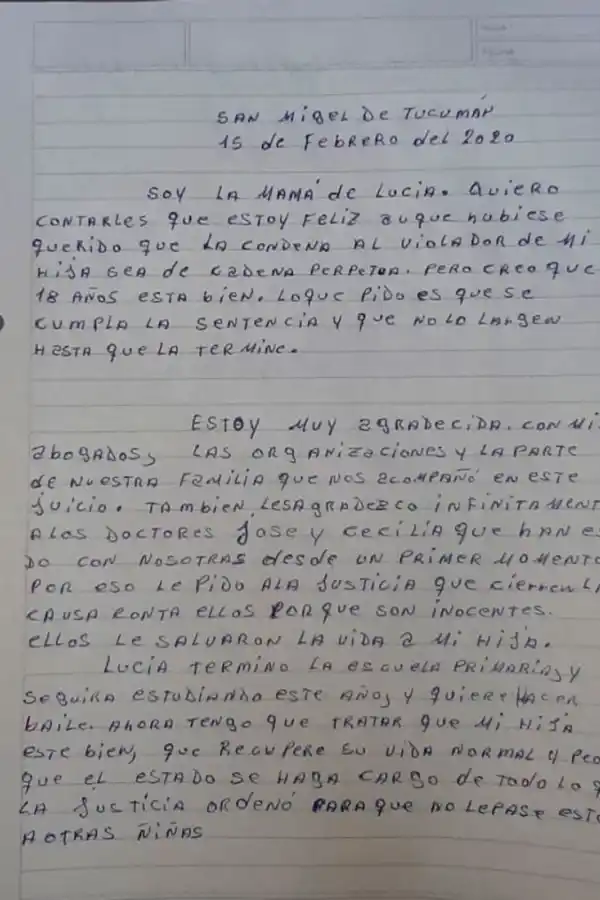 SAN MigeL De TUCUMAN
15 de FebReRo del 2020
SOY LA MAMÁ de Lucia. QuieRo
CONTARLes que esTOY FeLiZ auque hubiese
queRiDo que LA CONDENA AL VioLADoR de Mi
HiJA seA de caDeNA PeRPeTUA. PeRo CReo que
18 AÑOS esTA bien. Loque PiDo es que se
cumPLA LA SeNTeNciA y que No Lo LARgen
HasTA que LA TeRMine.
ESTOY MUY agRADeciDA. CON Mi
abogADos, LAS oRgANizaciones y LA PARTe
de NuesTRA FamiLiA que Nos acomPAÑó eN esTe
Juicio. TAmbien LesAgRADezco iNFiNiTAMeNT
A Los DocToRes Jose y ceciLiA que hAN e
Do coN NosoTRAs desde UN PRiMeR MoMeNTo
PoR eso Le PiDo ALA JusTiciA que cieRRen L
cAusA conTA eLLos PoRque son iNoceNTes.
eLLos Le SALVARoN LA viDA a Mi HiJA.
LuciA TeRMiNo LA escueLA PRiMARiA, y
SeguiRA esTuDiANDo esTe AÑo, y quieRe HAceR
bAiLe. AhoRA TeNgo que TRATAR que Mi HiJA
esTe bien, que RecuPeRe su viDA NoRMAL y PeD
que eL esTADo se HAgA CARgo de ToDo Lo q
LA JusTiciA oRDeNó PARA que No LePAse esTo
A oTRAS NiÑAS